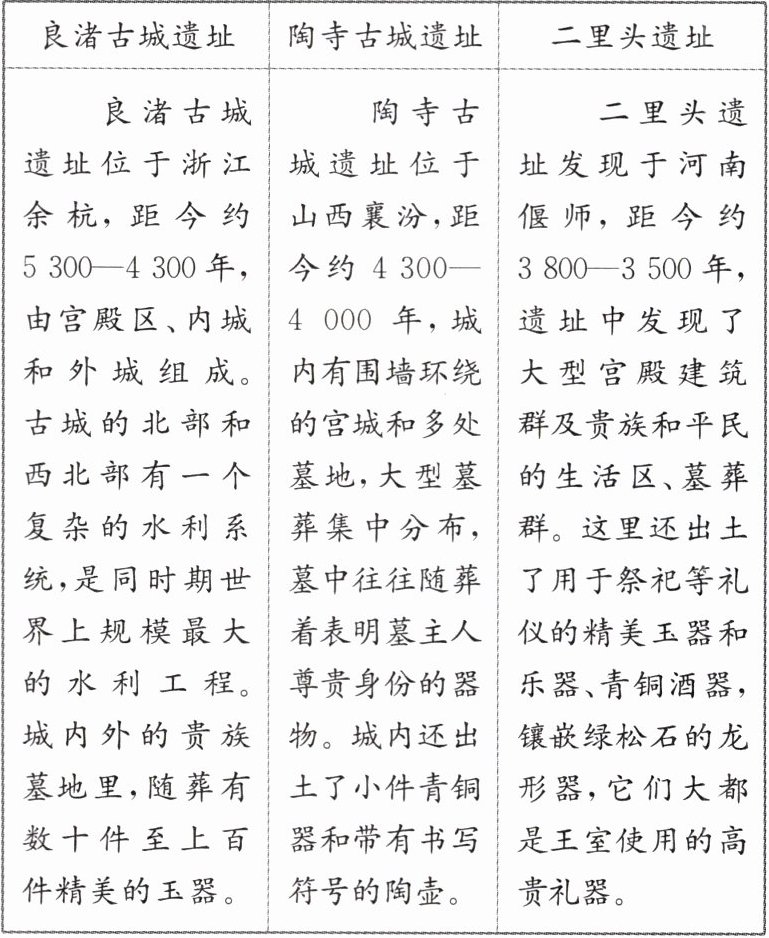 良渚古城遗址
良渚古城
遗址位于浙江
余杭，距今约
5 300—4 300 年，
由宫殿区、内城
和外城组成。
古城的北部和
西北部有一个
复杂的水利系
统，是同时期世
界上规模最大
的水利工程。
城内外的贵族
墓地里，随葬有
数十件至上百
件精美的玉器。
陶寺古城遗址
陶寺古
城遗址位于
山西襄汾，距
今约 4 300—
4 000 年，城
内有围墙环绕
的宫城和多处
墓地，大型墓
葬集中分布，
墓中往往随葬
着表明墓主人
尊贵身份的器
物。城内还出
土了小件青铜
器和带有书写
符号的陶壶。
二里头遗址
二里头遗
址发现于河南
偃师，距今约
3 800—3 500 年，
遗址中发现了
大型宫殿建筑
群及贵族和平民
的生活区、墓葬
群。这里还出土
了用于祭祀等礼
仪的精美玉器和
乐器、青铜酒器，
镶嵌绿松石的龙
形器，它们大都
是王室使用的高
贵礼器。